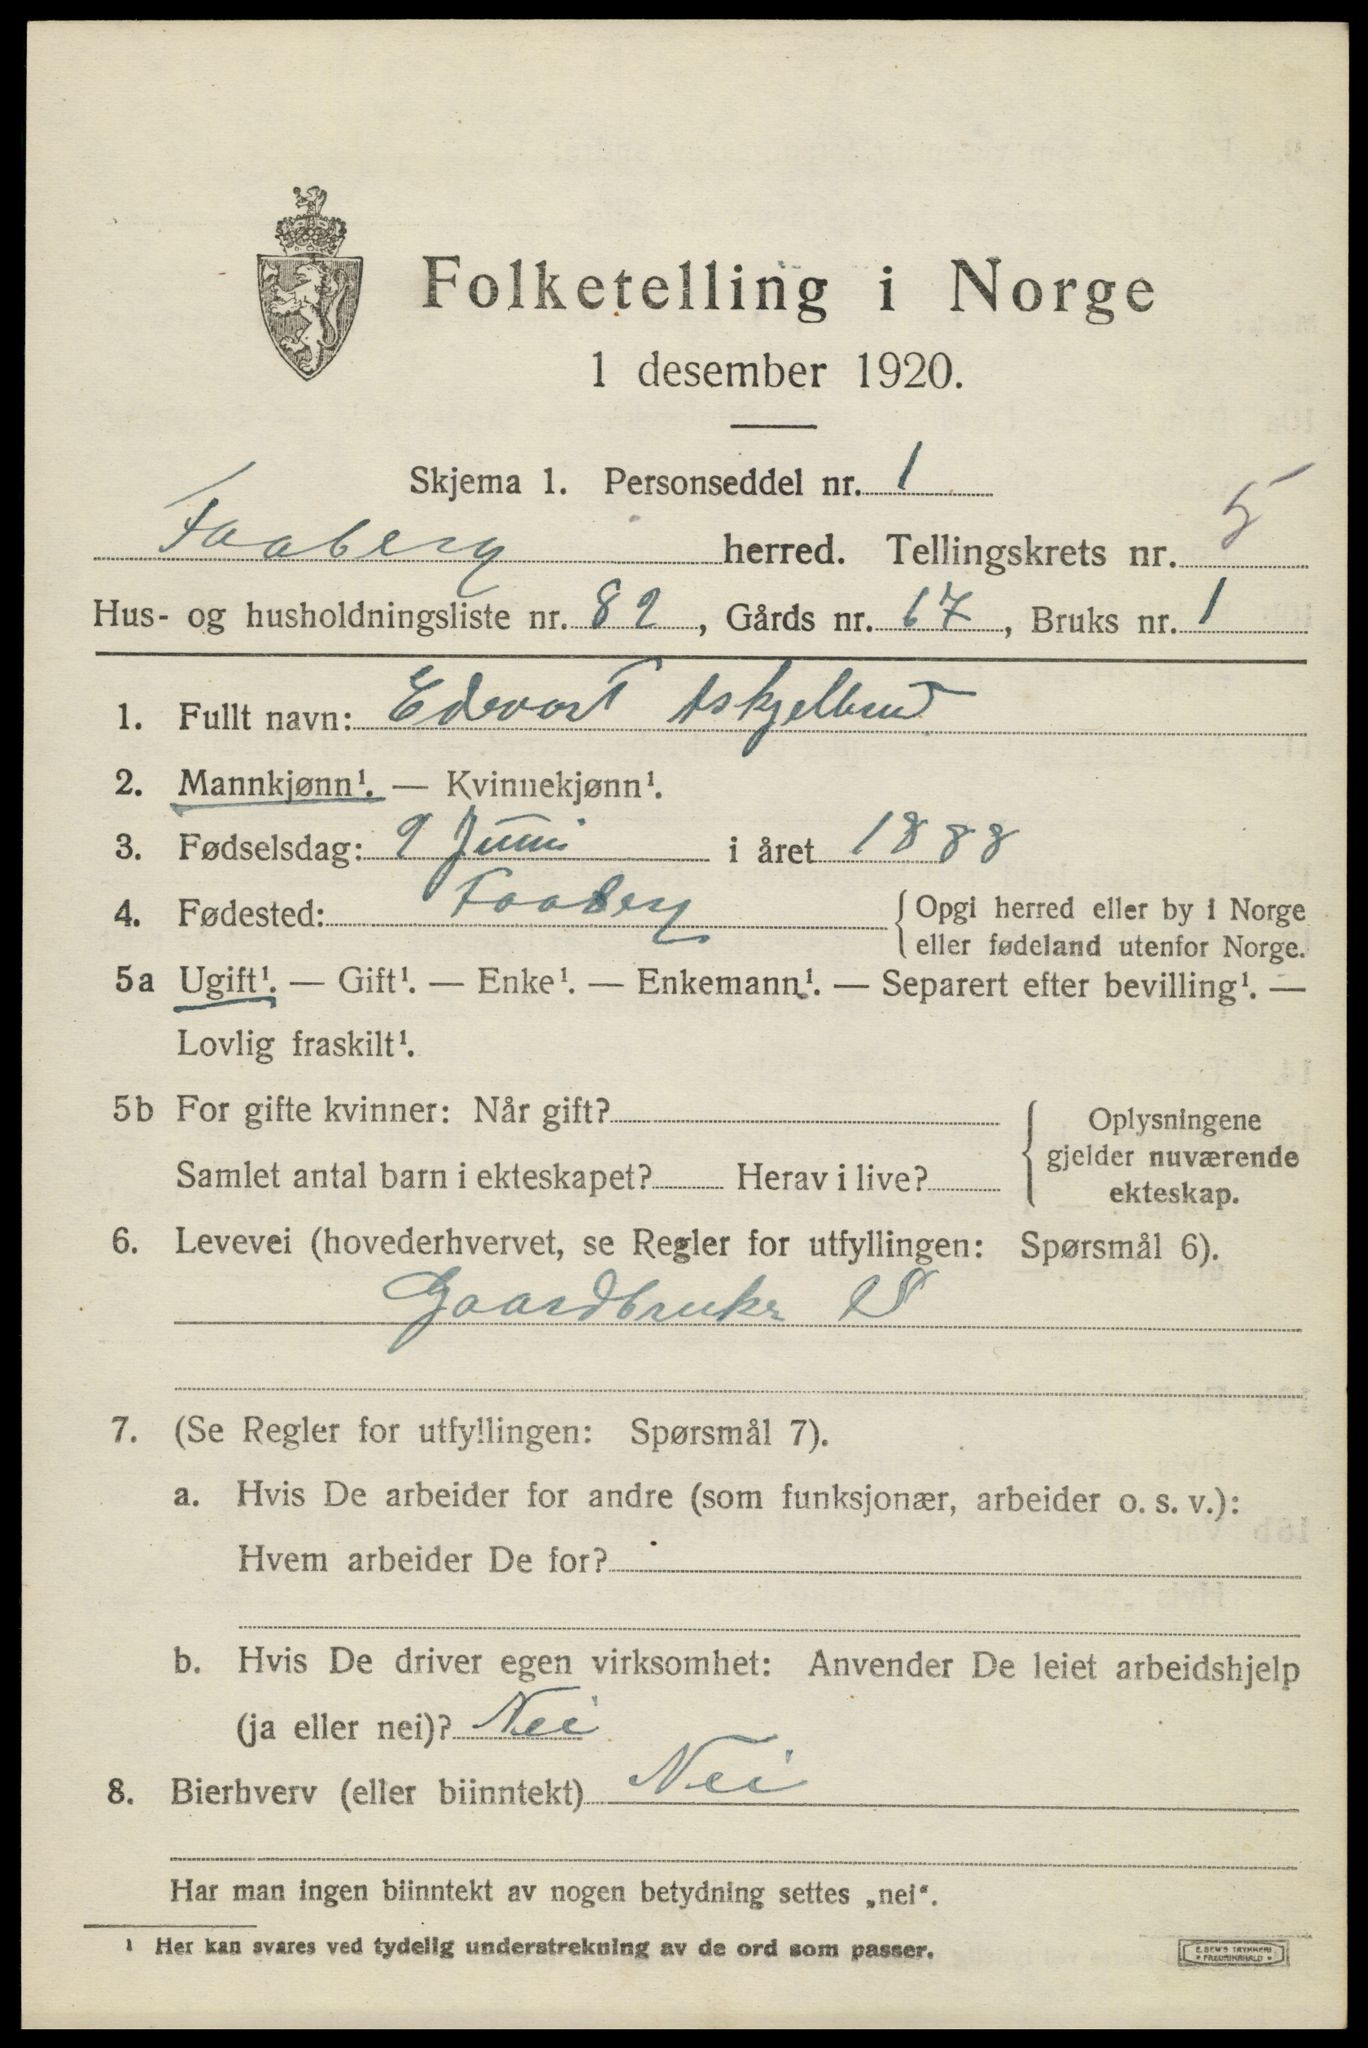 Folketelling i Norge
1 desember 1920.
Skjema 1. Personseddel nr. 1
Faaberg herred. Tellingskrets nr. 5
Hus- og husholdningsliste nr. 82, Gårds nr. 67, Bruks nr. 1
1. Fullt navn: Edvart Askjellrud
2. Mannkjønn¹. — Kvinnekjønn¹.
3. Fødselsdag: 9 Juni i året 1888
4. Fødested: Faaberg { Opgi herred eller by i Norge
eller fødeland utenfor Norge.
5a Ugift¹. — Gift¹. — Enke¹. — Enkemann¹. — Separert efter bevilling¹. —
Lovlig fraskilt¹.
5b For gifte kvinner: Når gift?
Samlet antal barn i ekteskapet? Herav i live?
{ Oplysningene
gjelder nuværende
ekteskap.
6. Levevei (hovederhvervet, se Regler for utfyllingen: Spørsmål 6).
Gaardbruker S
7. (Se Regler for utfyllingen: Spørsmål 7).
a. Hvis De arbeider for andre (som funksjonær, arbeider o. s. v.):
Hvem arbeider De for?
b. Hvis De driver egen virksomhet: Anvender De leiet arbeidshjelp
(ja eller nei)? Nei
8. Bierhverv (eller biinntekt) Nei
Har man ingen biinntekt av nogen betydning settes „nei“.
¹ Her kan svares ved tydelig understrekning av de ord som passer.
E. SEM'S TRYKKERI
FREDRIKSHALD